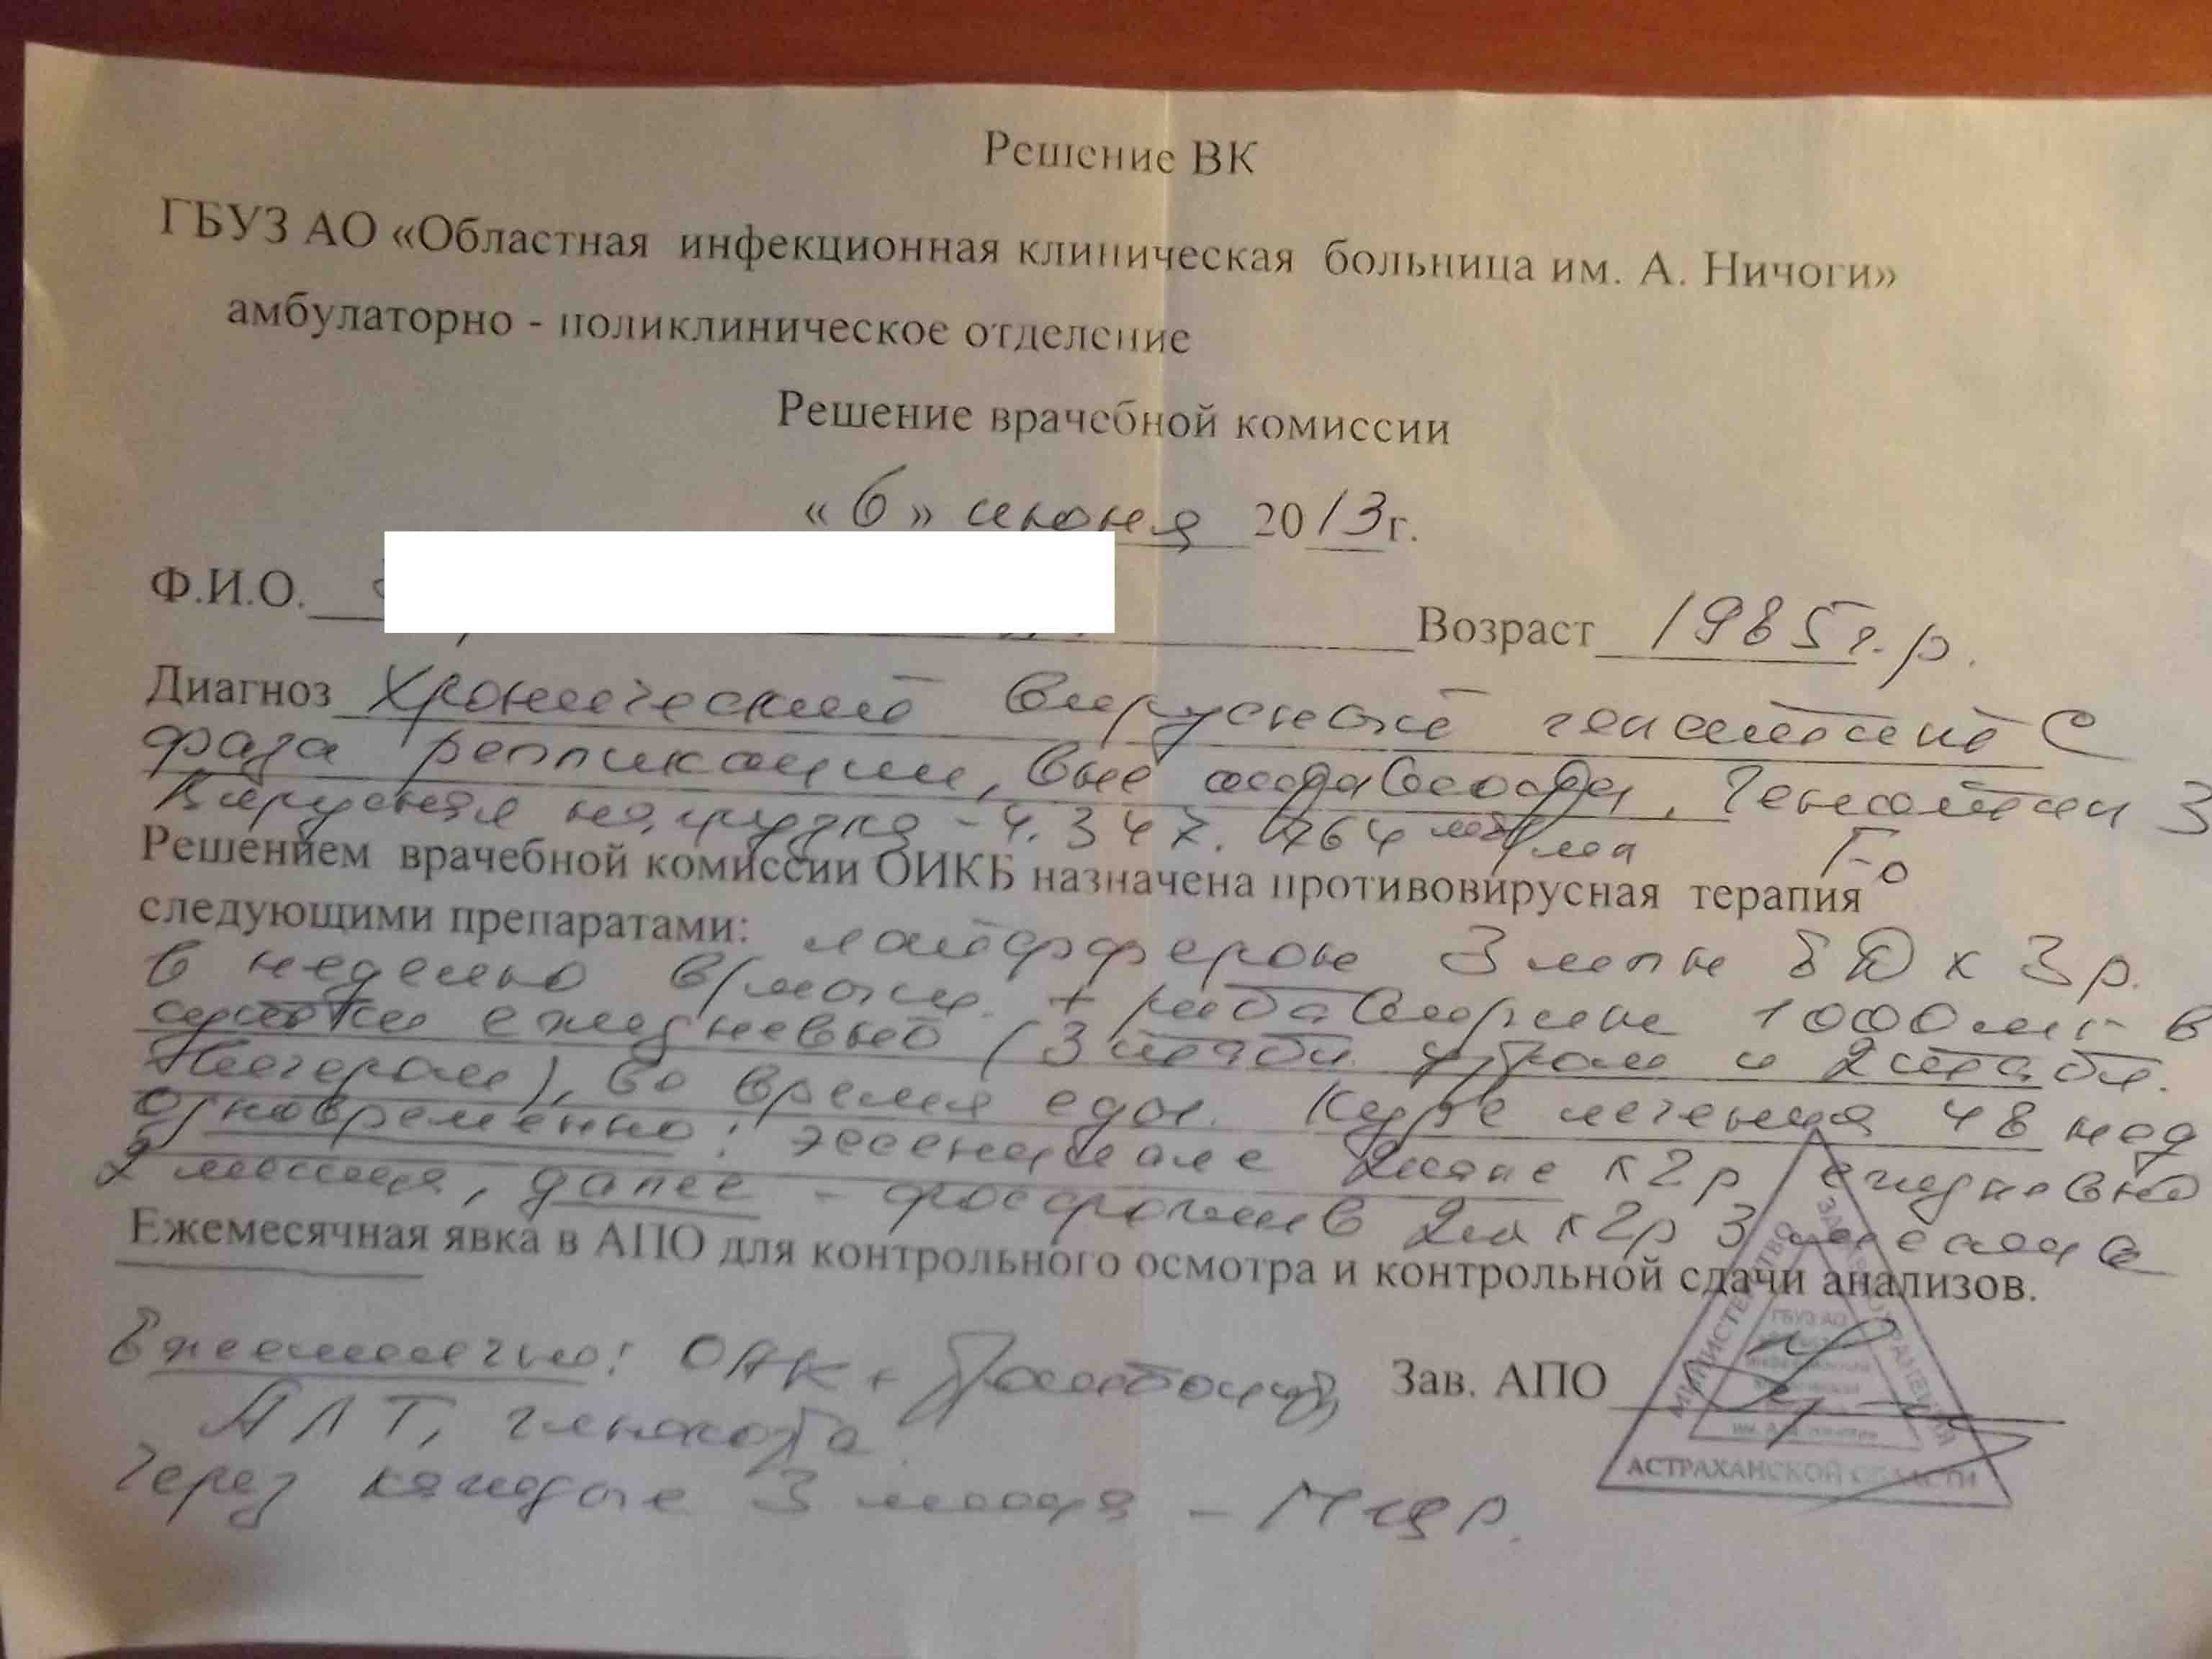 Решение ВК
ГБУЗ АО «Областная инфекционная клиническая больница им. А. Ничоги»
амбулаторно - поликлиническое отделение
Решение врачебной комиссии
«6» июня 2013г.
Ф.И.О. Возраст 1985г.р.
Диагноз Хронический вирусный гепатит С
фаза репликации, вне, Генотип 3
Вирусная нагрузка - 4.347.764 F-0
Решением врачебной комиссии ОИКБ назначена противовирусная терапия
следующими препаратами: лайфферон 3 млн ЕД х 3р.
в неделю в/мыш. + рибавирин 1000мг в
сутки ежедневно (3 табл. утром и 2 табл.
вечером), во время еды. Курс лечения 48 нед
Одновременно: эссенциале х 2р ежедневно
2 месяца, далее - фосфоглив х 2р 3 месяца
Ежемесячная явка в АПО для контрольного осмотра и контрольной сдачи анализов.
Ежемесячно: ОАК + тромбоциты,
Зав. АПО
АЛТ, глюкоза
Через каждые 3 месяца - ПЦР.
МИНИСТЕРСТВО ЗДРАВООХРАНЕНИЯ
АСТРАХАНСКОЙ ОБЛАСТИ
ГБУЗ АО